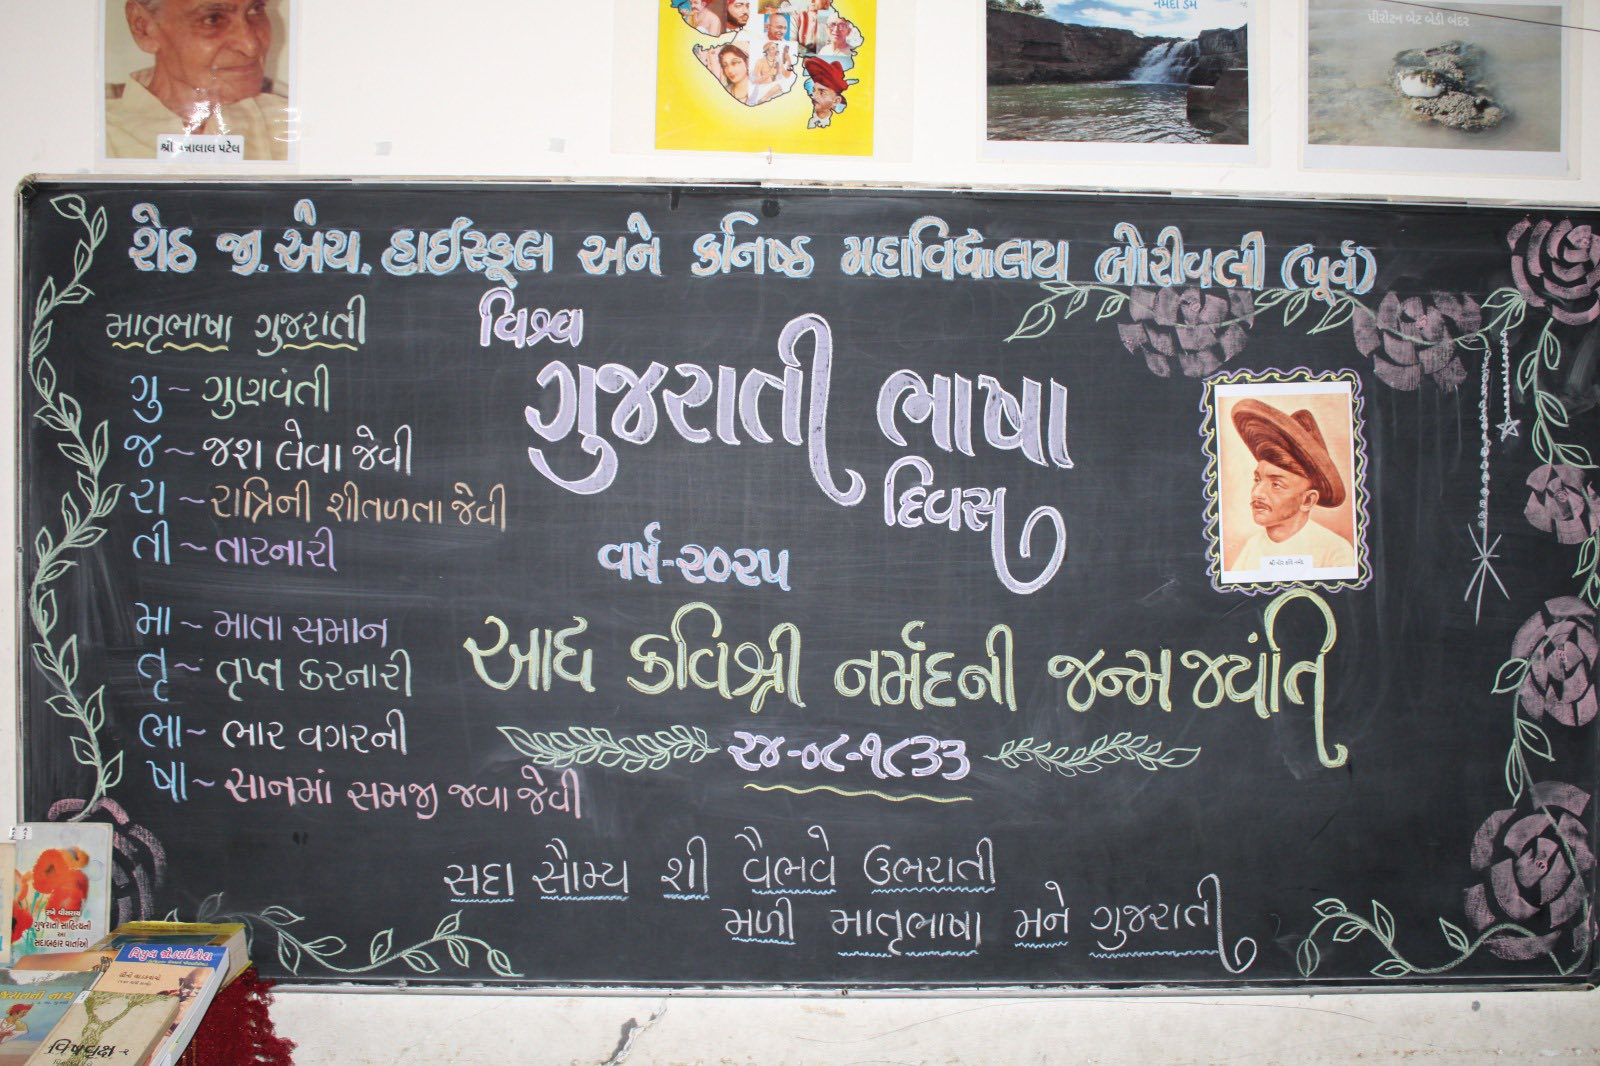 શ્રી પન્નાલાલ પટેલ
નર્મદા ડેમ
પીરોટન બેટ બેડી બંદર
શેઠ જી. એચ. હાઈસ્કૂલ અને કનિષ્ઠ મહાવિદ્યાલય બોરીવલી (પૂર્વ)
માતૃભાષા ગુજરાતી
ગુ ~ ગુણવંતી
જ ~ જશ લેવા જેવી
રા ~ રાત્રિની શીતળતા જેવી
તી ~ તારનારી
મા ~ માતા સમાન
તૃ ~ તૃપ્ત કરનારી
ભા ~ ભાર વગરની
ષા ~ સાનમાં સમજી જવા જેવી
વિશ્વ
ગુજરાતી ભાષા
દિવસ
વર્ષ-૨૦૨૫
આદ્ય કવિશ્રી નર્મદની જન્મ જયંતિ
૨૪-૦૮-૧૮૩૩
સદા સૌમ્ય શી વૈભવે ઉભરાતી
મળી માતૃભાષા મને ગુજરાતી
શ્રી વીર કવિ નર્મદ
ગુજરાતી સાહિત્યની
સદાબહાર વાર્તાઓ
વિષવૃક્ષ-૨